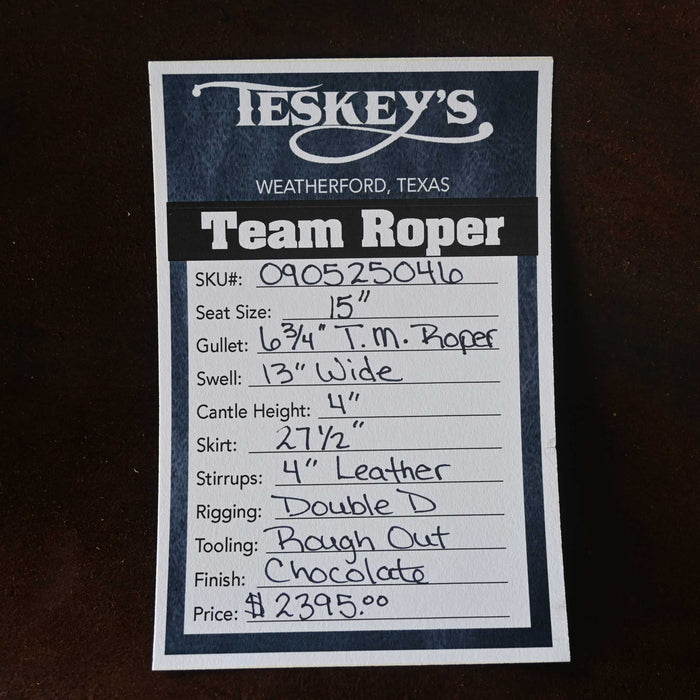 TESKEY'S
WEATHERFORD, TEXAS
Team Roper
SKU#: 090525046
Seat Size: 15"
Gullet: 6 3/4" T.M. Roper
Swell: 13" Wide
Cantle Height: 4"
Skirt: 27 1/2"
Stirrups: 4" Leather
Rigging: Double D
Tooling: Rough Out
Finish: Chocolate
Price: $ 2395.00